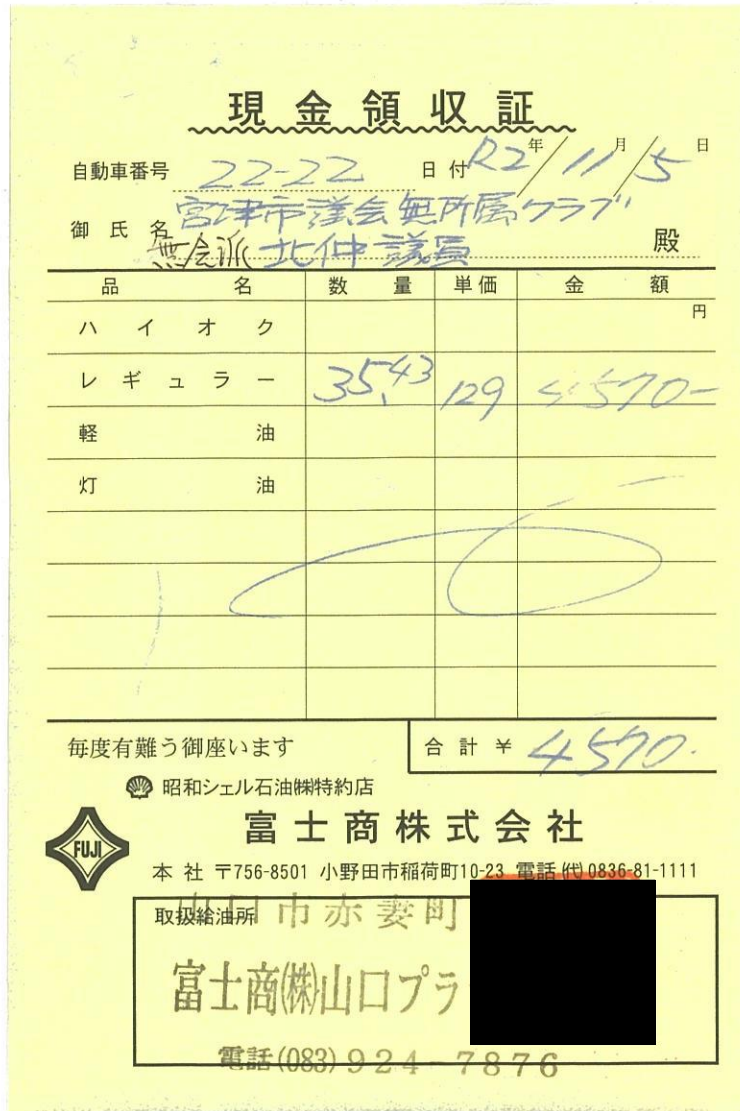 現金領収証
自動車番号 22-22 日付 R2年/11月/5日
御氏名 宮津市議会無所属クラブ
無会派 北仲議員 殿
品名 数量 単価 金額
ハイオク 円
レギュラー 35.43 129 4570-
軽油
灯油
毎度有難う御座います 合計 ¥ 4570.
昭和シェル石油㈱特約店
FUJI 富士商株式会社
本社 〒756-8501 小野田市稲荷町10-23 電話(代)0836-81-1111
取扱給油所 山口市赤妻町
富士商(株)山口プラ
電話(083)924-7876